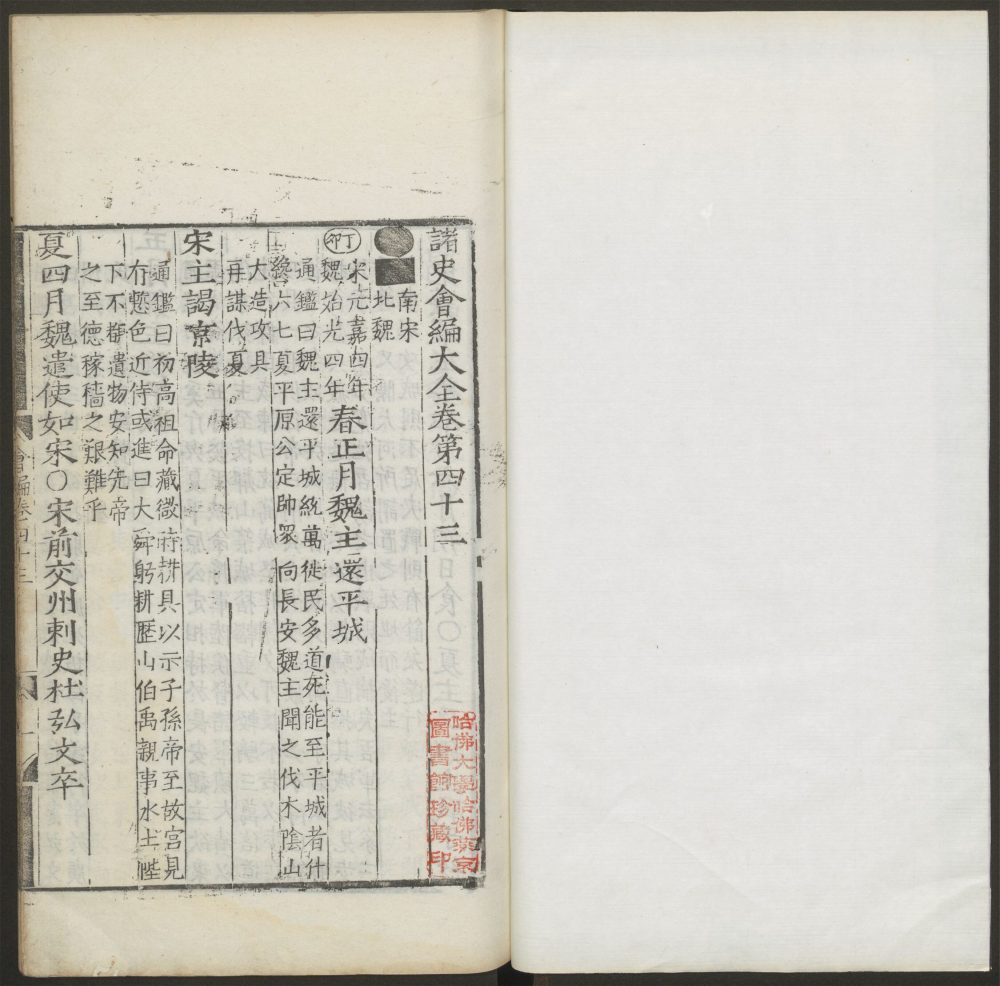 諸史會編大全卷第四十三
哈佛大學哈佛燕京
圖書館珍藏印
南宋
北魏
丁卯
宋元嘉四年
魏始光四年
春正月魏主還平城
通鑑曰魏主還平城統萬徙民多道死能至平城者什
纔六七夏平原公定帥眾向長安魏主聞之伐木陰山
大造攻具
再謀伐夏
宋主謁京陵
通鑑曰初高祖命藏微時耕具以示子孫帝至故宮見
有慙色近侍或進曰大舜躬耕歷山伯禹親事水土陛
下不覩遺物安知先帝
之至德稼穡之艱難乎
夏四月魏遣使如宋○宋前交州刺史杜弘文卒
會編卷四十三
一